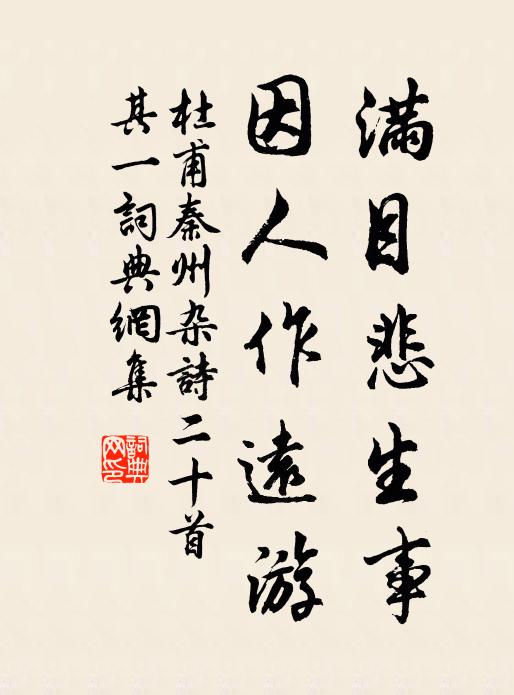 滿目悲生事
因人作遠游
杜甫秦州杂詩二十首
其一詞典網集
詞典网印